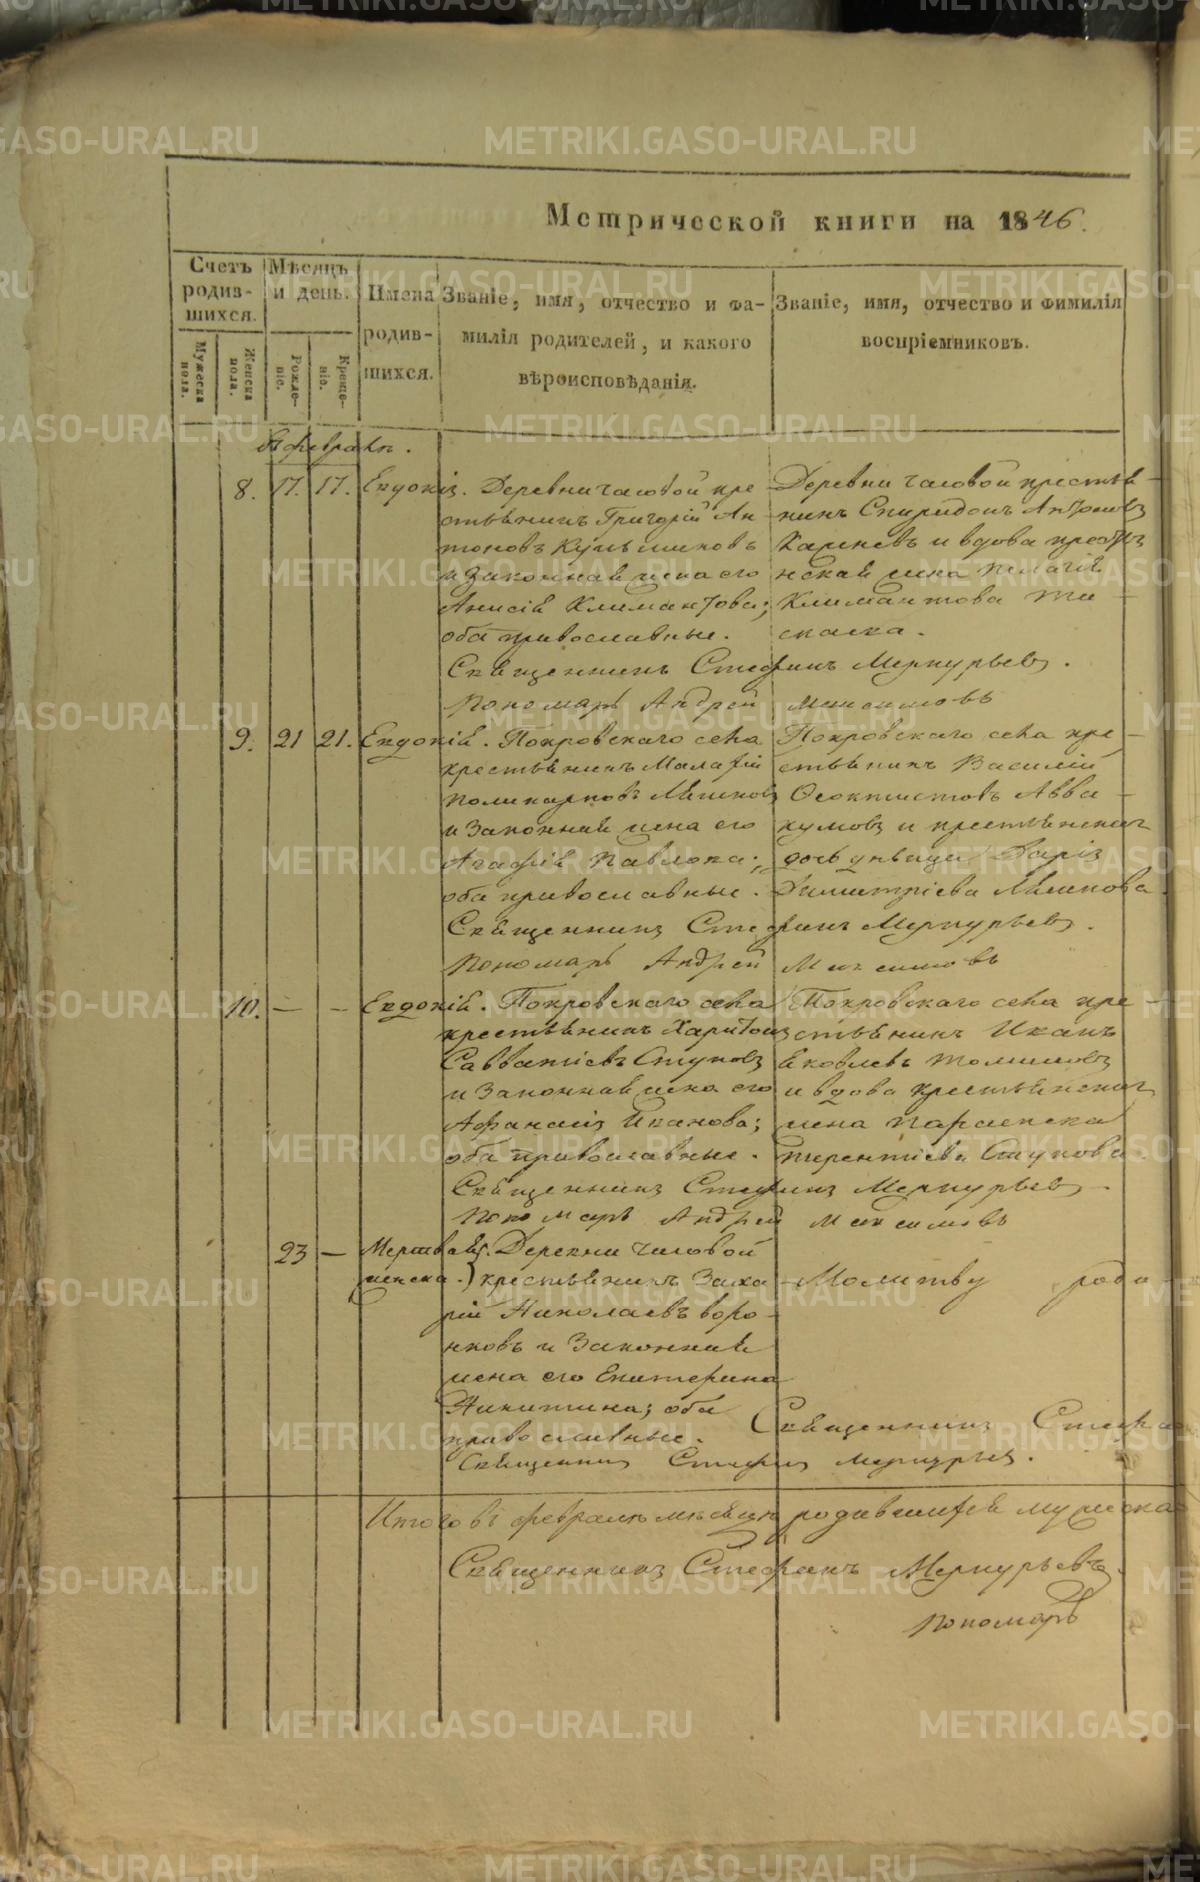 Метрической книги на 1846.
Счетъ родив-шихся.
Мѣсяцъ и день.
Имена родив-шихся.
Званіе, имя, отчество и фа-
милія родителей, и какого
вѣроисповѣданія.
Званіе, имя, отчество и фимилія
воспріемниковъ.
Мужеска пола.
Женска пола.
Рожде-ніе.
Креще-ніе.
февраль.
8. 17. 17. Евдокія. Деревни Часовой кре
стьянинъ Григорій Ан
тоновъ
и законная жена его
Анисія Климантова;
оба православные.
Деревни Часовой крестья-
нинъ Спиридонъ Антоновъ
и вдова крестья
нская жена Пелагія
Климантова
Священникъ Стефанъ Меркурьевъ.
Пономарь Андрей Максимовъ
9. 21 21. Евдокія. Покровскаго села
крестьянинъ Малафій
Поликарповъ
и законная жена его
Агафія Павлова;
оба православные.
Покровскаго села кре-
стьянинъ Василій
Феоктистовъ Авва-
кумовъ и крестьянская
дочь дѣвица Дарія
Димитріева
Священникъ Стефанъ Меркурьевъ.
Пономарь Андрей Максимовъ
10. — — Евдокія. Покровскаго села
крестьянинъ Харитонъ
Савватіевъ Ступовъ
и законная жена его
Афанасія Иванова;
оба православные.
Покровскаго села кре-
стьянинъ Иванъ
Яковлевъ Томиловъ
и вдова крестьянская
жена Параскева
Терентіева Ступова.
Священникъ Стефанъ Меркурьевъ.
Пономарь Андрей Максимовъ
23 — Мертвая Деревни Часовой
женска.) крестьянинъ Заха
рій Николаевъ Воро-
нковъ и законная
жена его Екатерина
Никитина; оба
православные.
Молитву роди-
Священникъ Стефа
Священникъ Стефанъ Меркурьевъ.
Итого въ февралѣ мѣсяцѣ родившихся мужеска
Священникъ Стефанъ Меркурьевъ.
Пономарь
METRIKI.GASO-URAL.RU